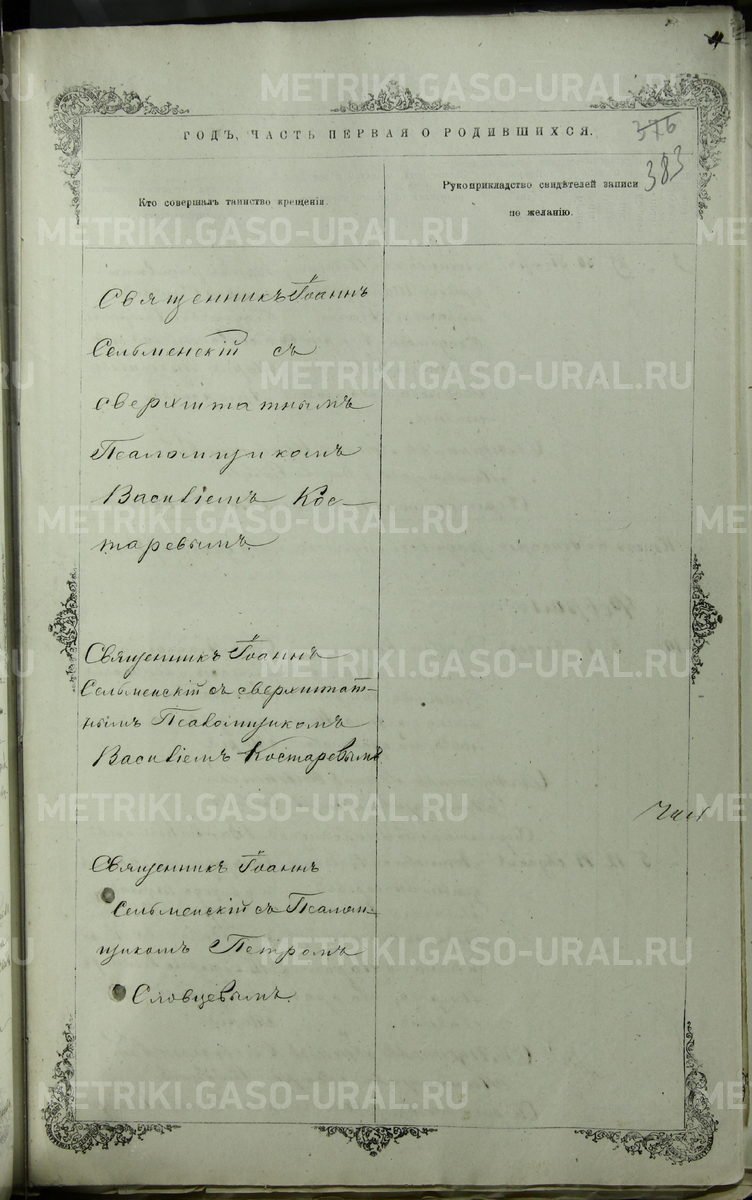 ГОДЪ, ЧАСТЬ ПЕРВАЯ О РОДИВШИХСЯ.
376
383
Кто совершалъ таинство крещенія.
Рукоприкладство свидѣтелей записи
по желанію.
Священникъ Іоаннъ
Сельменскій съ
сверхштатнымъ
Псаломщикомъ
Василіемъ Кос-
таревымъ.
Священникъ Іоаннъ
Сельменскій съ сверхштат-
нымъ Псаломщикомъ
Василіемъ Костаревымъ
Священникъ Іоаннъ
Сельменскій съ Псалом-
щикомъ Петромъ
Словцевымъ.
METRIKI.GASO-URAL.RU